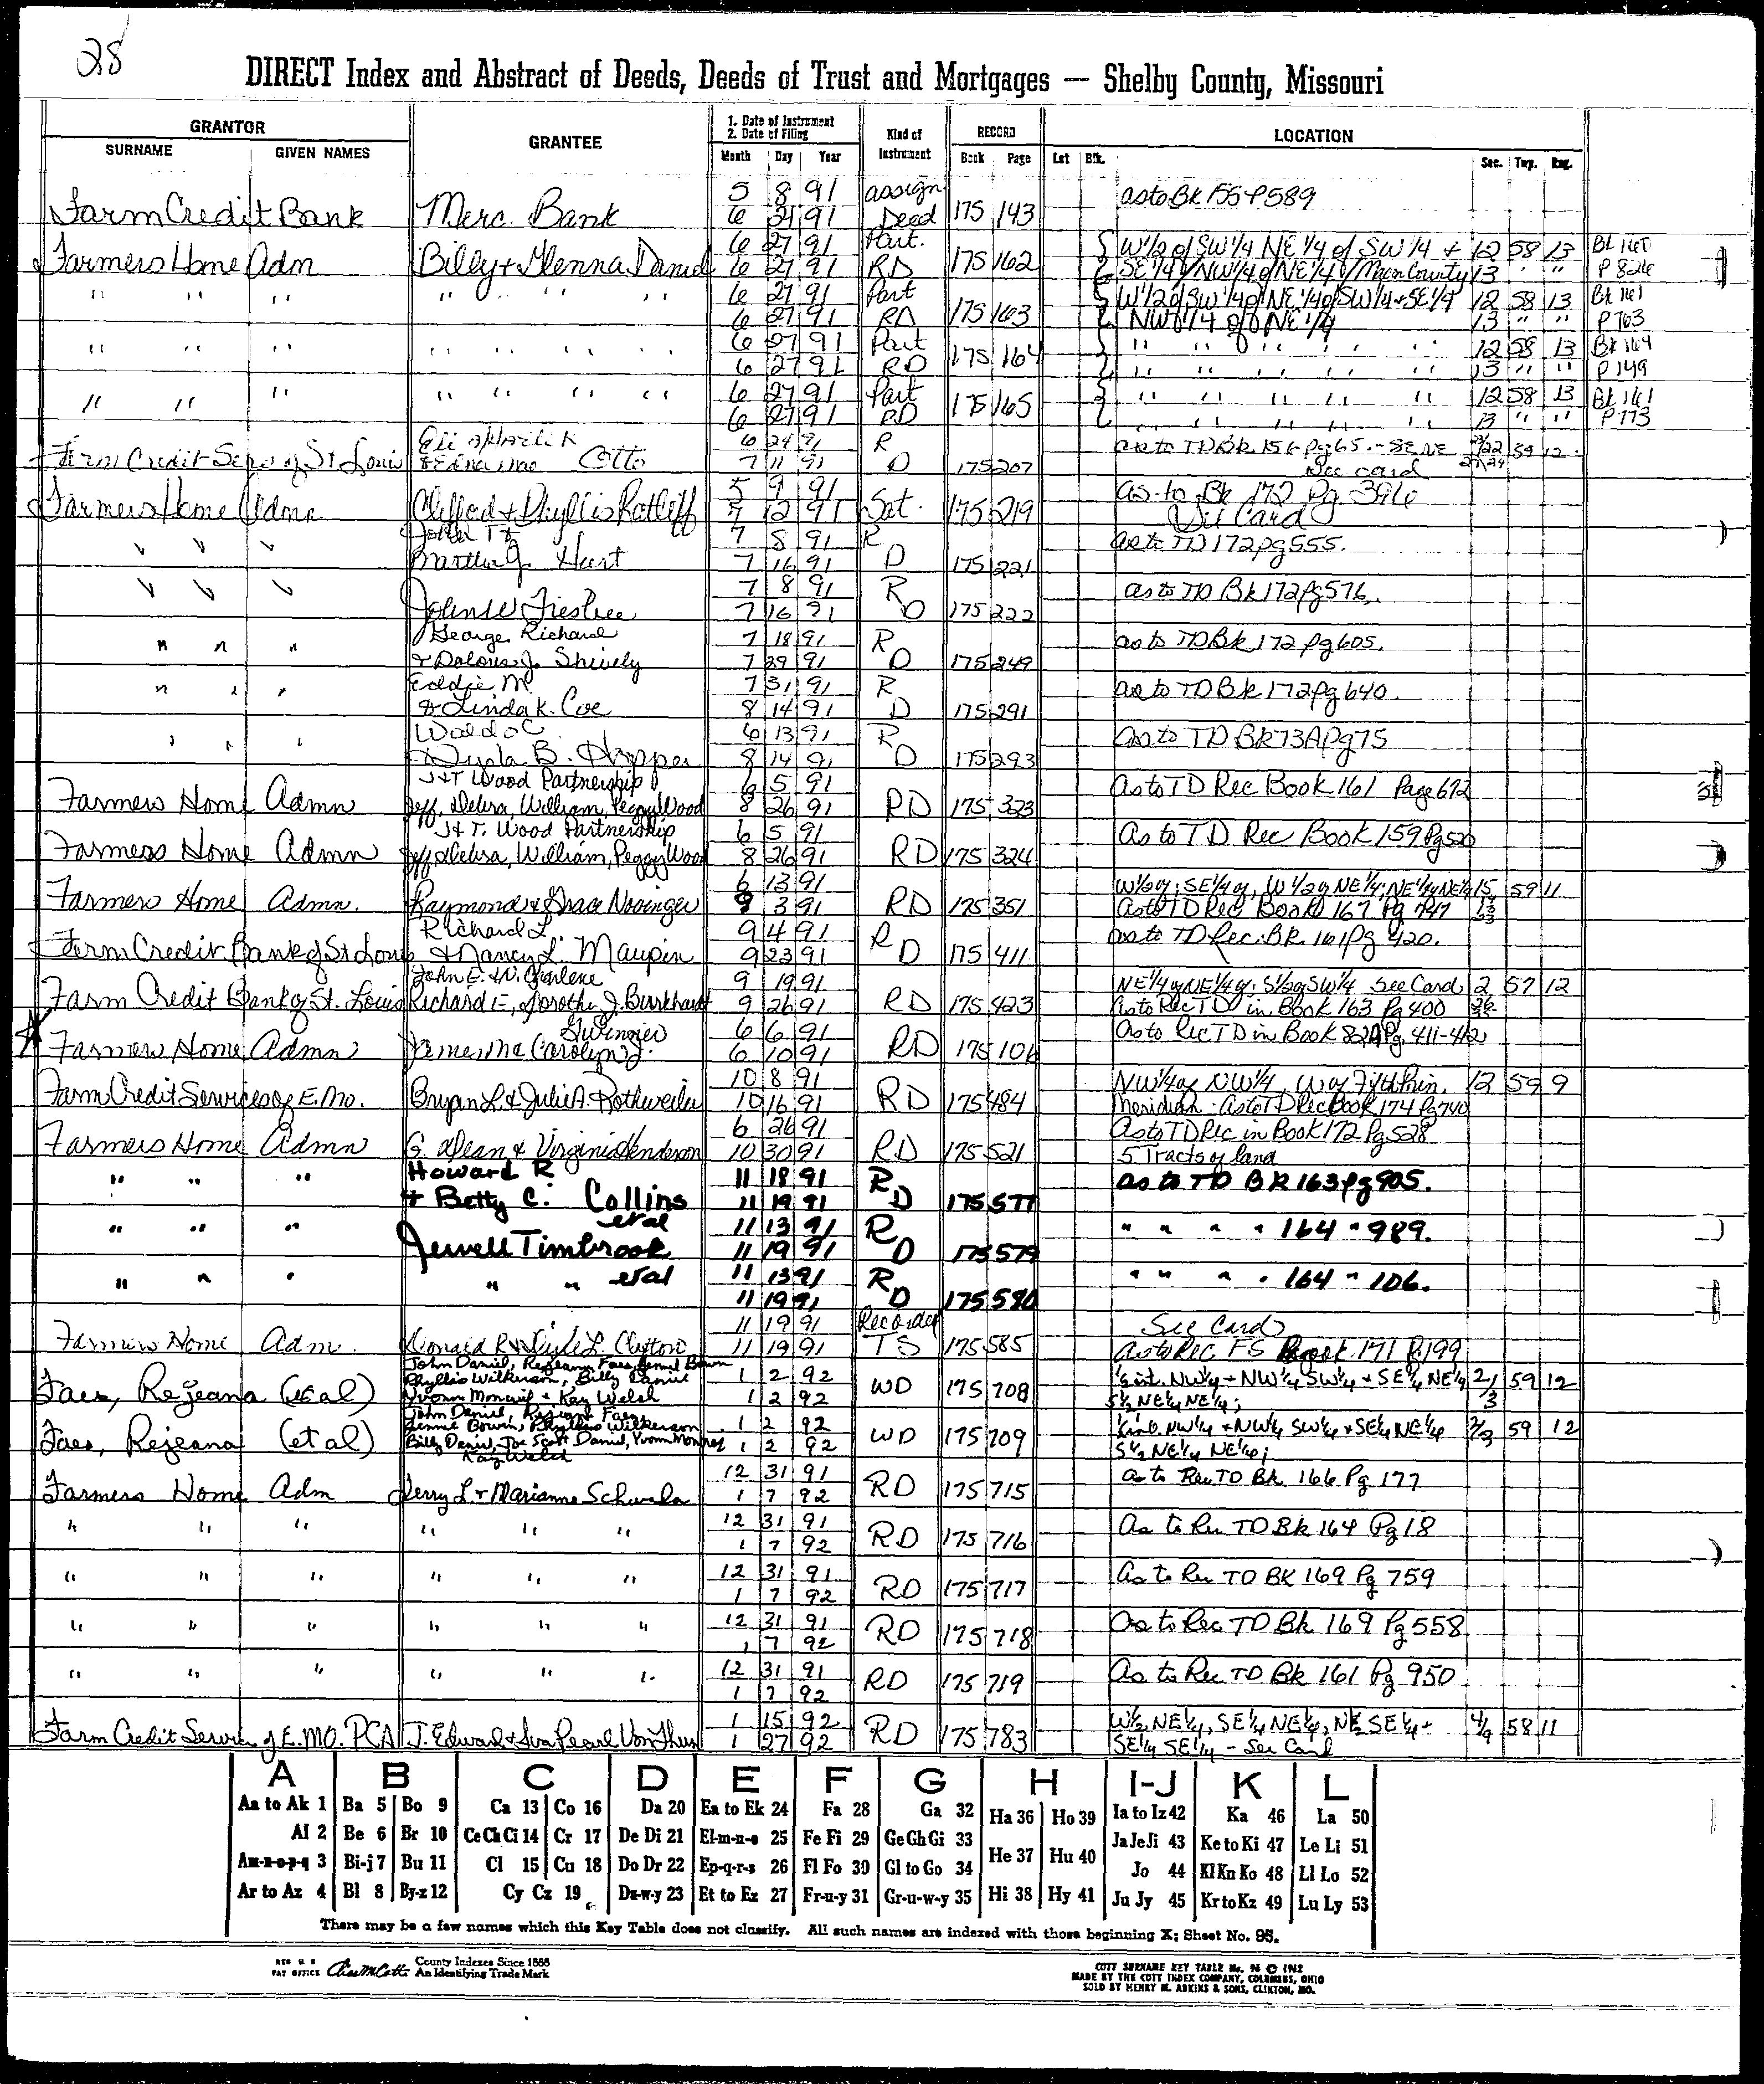 28
DIRECT Index and Abstract of Deeds, Deeds of Trust and Mortgages — Shelby County, Missouri
GRANTOR GRANTEE 1. Date of Instrument 2. Date of Filing Kind of Instrument RECORD LOCATION
SURNAME GIVEN NAMES Month Day Year Book Page Lot Blk. Sec. Twp. Rng.
5 8 91 assign as to Bk 155 P589
Farm Credit Bank Merc. Bank 6 21 91 Deed 175 143
6 27 91 Part. W 1/2 of SW 1/4 NE 1/4 of SW 1/4 + 12 58 13 Bk 160
Farmers Home Adm Billy + Glenna Daniel 6 27 91 RD 175 162 SE 1/4 of NW 1/4 of NE 1/4 / Macon County 13 " " P 826
" " " " " " " 6 27 91 Part 175 163 W 1/2 of SW 1/4 of NE 1/4 of SW 1/4 + SE 1/4 12 58 13 Bk 161
6 27 91 RD NW 1/4 of NE 1/4 13 " " P 763
" " " " " " " " 6 27 91 Part 175 164 " " " " " " 12 58 13 Bk 164
6 27 91 RD " " " " " " 13 " " P 149
" " " " " " " " 6 27 91 Part 175 165 " " " " " " 12 58 13 Bk 161
6 27 91 RD " " " " " " 13 " " P 773
6 24 91 R as to TD Bk. 156 Pg 65. - SE NE 59 12
Farm Credit Serv of St Louis & Edna Mae Otto 7 11 91 D 175 207 See card
5 9 91 as to Bk 172 Pg 396
Farmers Home Admn. Clifford + Phyllis Ratliff 7 12 91 Sat. 175 219 See Card
John T & 7 8 91 R as to TD 172 pg 555.
" " " Martha J. Hart 7 16 91 D 175 221
7 8 91 R as to TD Bk 172 Pg 576.
" " " John W 7 16 91 D 175 222
George Richard 7 18 91 R as to TD Bk 172 pg 605.
" " " & Dolores J. Shively 7 29 91 D 175 249
Eddie M. 7 31 91 R as to TD Bk 172 pg 640.
" " " & Linda K. Coe 8 14 91 D 175 291
Waldo C 6 13 91 R as to TD Bk 73A Pg 75
" " " B. Hopper 8 14 91 D 175 293
J&T Wood Partnership 6 5 91 As to TD Rec Book 161 Page 672
Farmers Home Admn Jeff, Debra, William, Peggy Wood 8 26 91 RD 175 323
J&T. Wood Partnership 6 5 91 As to TD Rec Book 159 Pg 520
Farmers Home Admn Jeff, Debra, William, Peggy Wood 8 26 91 RD 175 324
6 13 91 W 1/2 of; SE 1/4 of, W 1/2 of NE 1/4; NE 1/4 of NE 1/4 15 59 11
Farmers Home Admn. Raymond & Grace Novinger 9 3 91 RD 175 351 As to TD Rec Book 167 Pg 747
Richard L. 9 4 91 R as to TD Rec. Bk. 161 Pg 420.
Farm Credit Bank of St Louis & Nancy L. Maupin 9 23 91 D 175 411
John E. & W. Charlene 9 19 91 NE 1/4 of NE 1/4 of: S 1/2 of SW 1/4 See Card 2 57 12
Farm Credit Bank of St. Louis Richard E, Dorothy J. Burkhardt 9 26 91 RD 175 423 As to Rec TD in Book 163 Pg 400
Gwinner 6 6 91 As to Rec TD in Book 82A Pg. 411-412
Farmers Home Admn James Carolyn J. 6 10 91 RD 175 101
10 8 91 NW 1/4 of NW 1/4, W of Fifth Prin. 12 59 9
Farm Credit Services of E. Mo. Bryan L. & Julie A. Rothweiler 10 16 91 RD 175 484 Meridian - As to TD Rec Book 174 Pg 740
6 26 91 As to TD Rec in Book 172 Pg 528
Farmers Home Admn G. Dean & Virginia Henderson 10 30 91 RD 175 521 5 Tracts of land
Howard R 11 18 91 R as to TD Bk 163 pg 905.
" " " + Betty C. Collins 11 19 91 D 175 577
etal 11 13 91 R " " " " 164 " 989.
" " " Jewell Timbrook 11 19 91 D 175 579
" " " " " etal 11 13 91 R " " " " 164 " 106.
11 19 91 D 175 580
11 19 91 Recorded See Card
Farmers Home Adm. Donald R & L. Clayton 11 19 91 TS 175 585 As to Rec FS Book 171 P. 199
John Daniel, Rejeana Faes, Bennie Bowen
Phyllis Wilkerson, Billy Daniel 1 2 92 NW 1/4 + NW 1/4 SW 1/4 + SE 1/4 NE 1/4 2/3 59 12
Faes, Rejeana (et al) Yvonne + Kay Welch 1 2 92 WD 175 708 S 1/2 NE 1/4 NE 1/4;
John Daniel, Rejeana Faes
Bennie Bowen, Phyllis Wilkerson 1 2 92 NW 1/4 + NW 1/4 SW 1/4 + SE 1/4 NE 1/4 2/3 59 12
Faes, Rejeana (et al) Billy Daniel, Joe Scott Daniel, Yvonne 1 2 92 WD 175 709 S 1/2 NE 1/4 NE 1/4;
Kay Welch
12 31 91 as to Rec TD Bk 166 Pg 177
Farmers Home Adm Jerry L. + Marianne Schwada 1 7 92 RD 175 715
" " " " " " 12 31 91 RD 175 716 As to Rec TD Bk 164 Pg 18
1 7 92
" " " " " " 12 31 91 RD 175 717 As to Rec TD Bk 169 Pg 759
1 7 92
" " " " " " 12 31 91 RD 175 718 As to Rec TD Bk 169 Pg 558
1 7 92
" " " " " " 12 31 91 RD 175 719 As to Rec TD Bk 161 Pg 950
1 7 92
1 15 92 W 1/2 NE 1/4, SE 1/4 NE 1/4, N 1/2 SE 1/4 + 4/9 58 11
Farm Credit Service of E. MO. PCA J. Edward & Iva Pearl VonThun 1 27 92 RD 175 783 SE 1/4 SE 1/4 - See Card
A B C D E F G H I-J K L
Aa to Ak 1 Ba 5 Bo 9 Ca 13 Co 16 Da 20 Ea to Ek 24 Fa 28 Ga 32 Ha 36 Ho 39 Ia to Iz 42 Ka 46 La 50
Al 2 Be 6 Br 10 Ce Ch Ci 14 Cr 17 De Di 21 El-m-n-o 25 Fe Fi 29 Ge Gh Gi 33 He 37 Hu 40 Ja Je Ji 43 Ke to Ki 47 Le Li 51
Am-n-o-p-q 3 Bi-j 7 Bu 11 Cl 15 Cu 18 Do Dr 22 Ep-q-r-s 26 Fl Fo 30 Gl to Go 34 Hi 38 Hy 41 Jo 44 Kl Kn Ko 48 Ll Lo 52
Ar to Az 4 Bl 8 By-z 12 Cy Cz 19 Du-w-y 23 Et to Ez 27 Fr-u-y 31 Gr-u-w-y 35 Ju Jy 45 Kr to Kz 49 Lu Ly 53
There may be a few names which this Key Table does not classify. All such names are indexed with those beginning X; Sheet No. 95.
REG U S PAT OFFICE County Indexes Since 1888 An Identifying Trade Mark
COTT SURNAME KEY TABLE No. 96 © 1962
MADE BY THE COTT INDEX COMPANY, COLUMBUS, OHIO
SOLD BY HENRY M. ADKINS & SONS, CLINTON, MO.